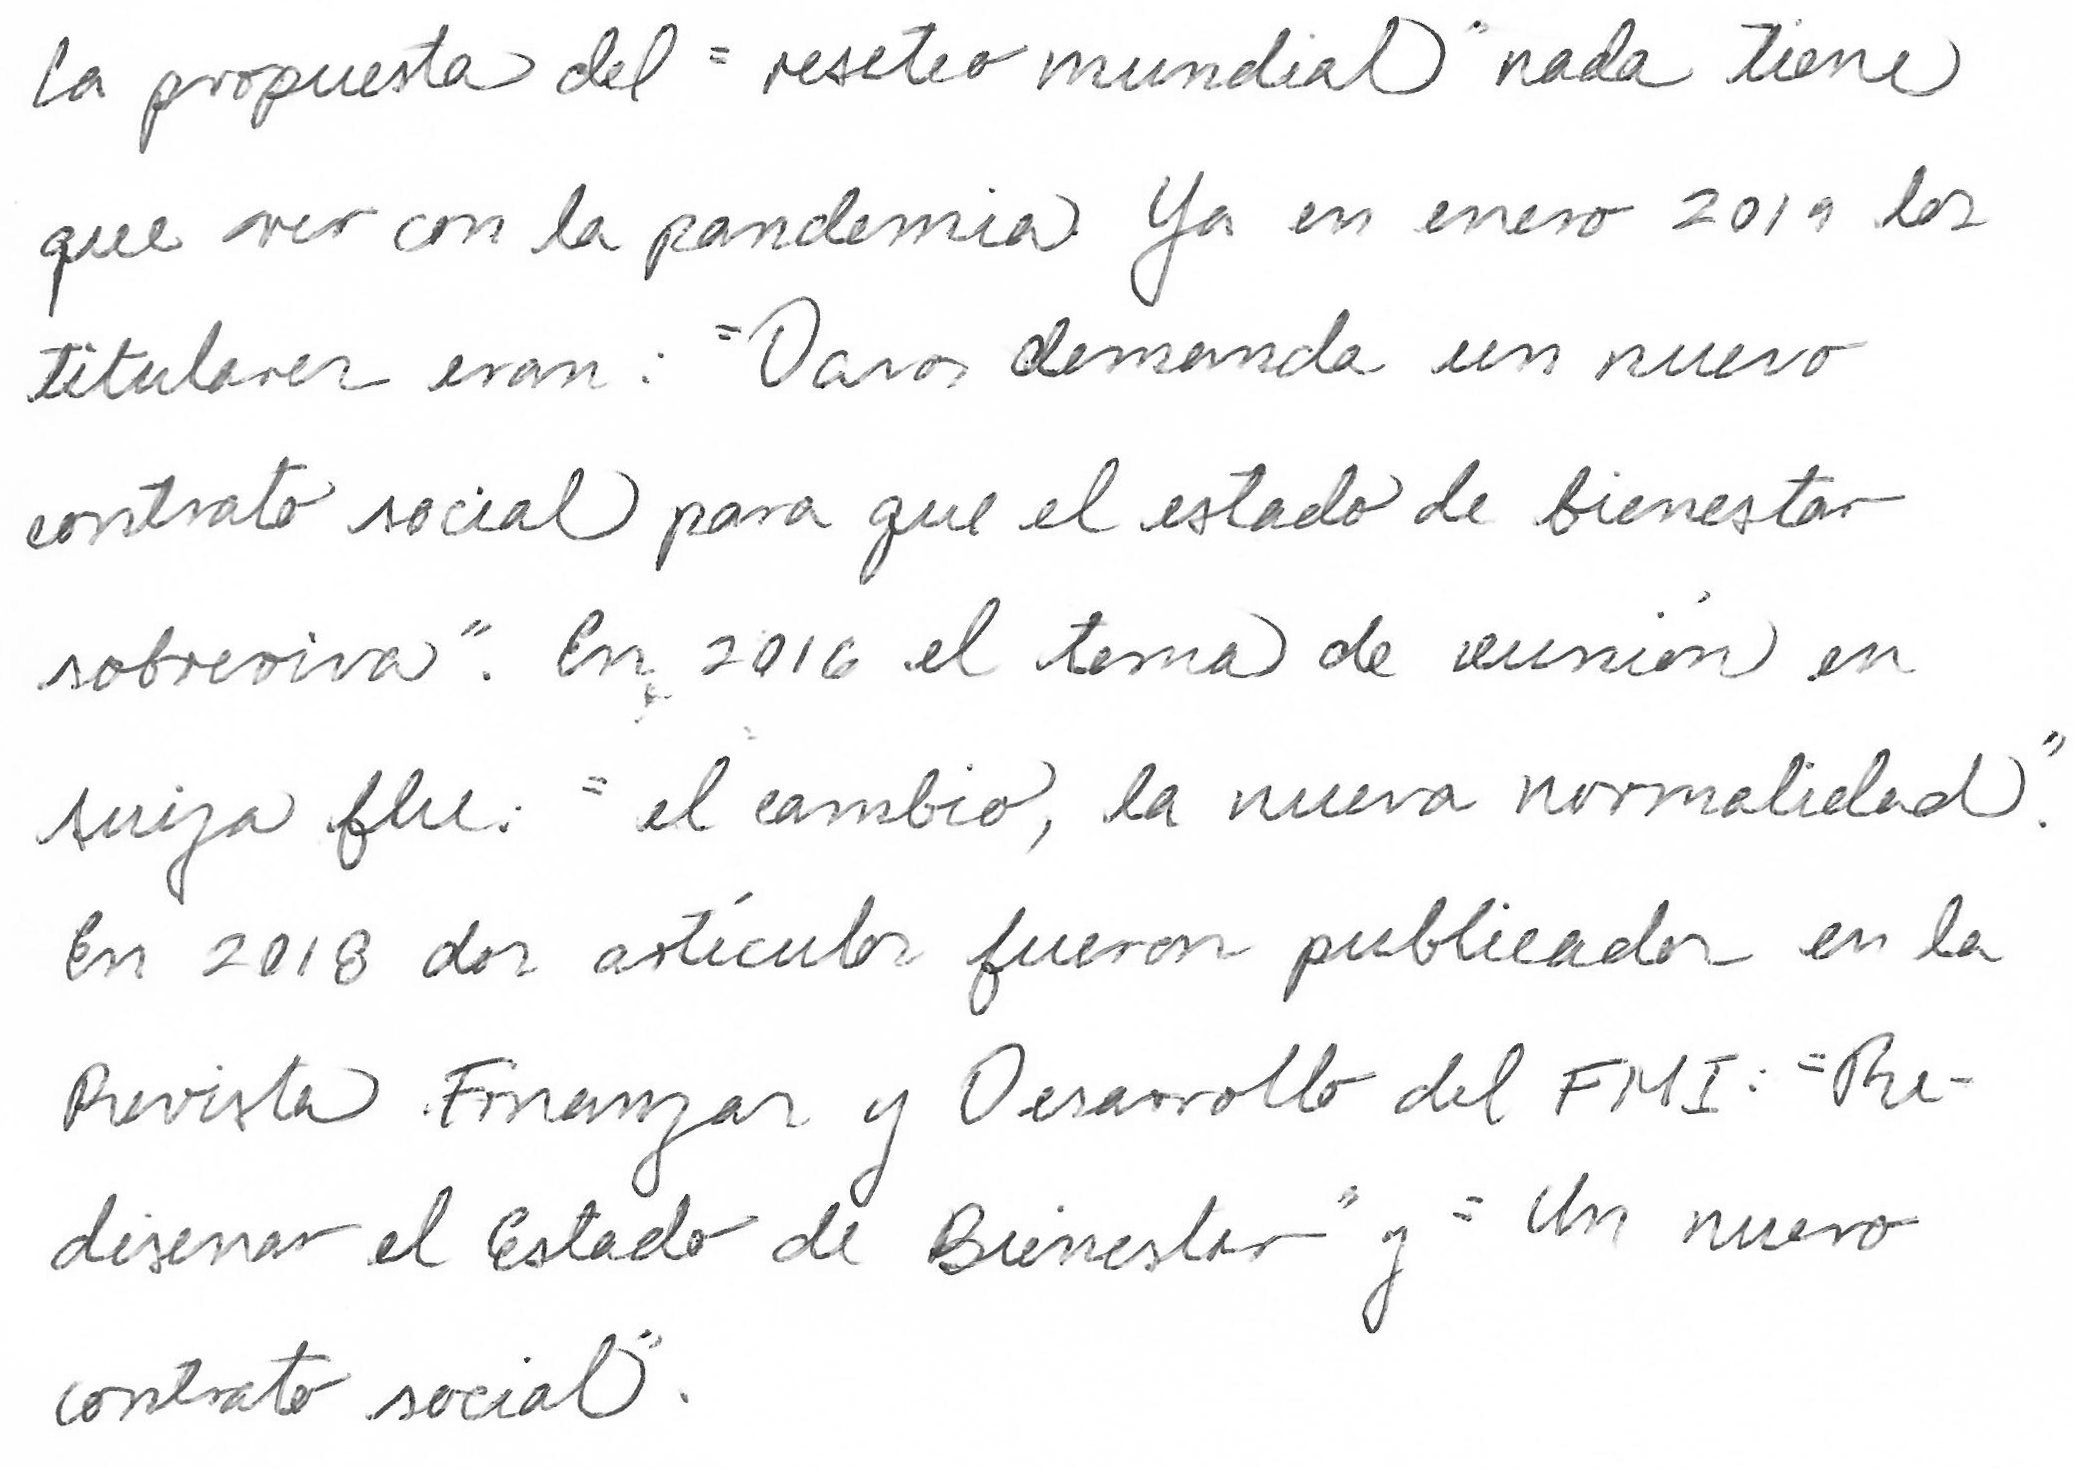 La propuesta del "reseteo mundial" nada tiene
que ver con la pandemia. Ya en enero 2019 los
titulares eran: "Davos demanda un nuevo
contrato social para que el estado de bienestar
sobreviva". En 2016 el tema de reunión en
Suiza fue: "el cambio, la nueva normalidad".
En 2018 dos artículos fueron publicados en la
Revista Finanzas y Desarrollo del FMI: "Re-
disenar el Estado de Bienestar" y "Un nuevo
contrato social".